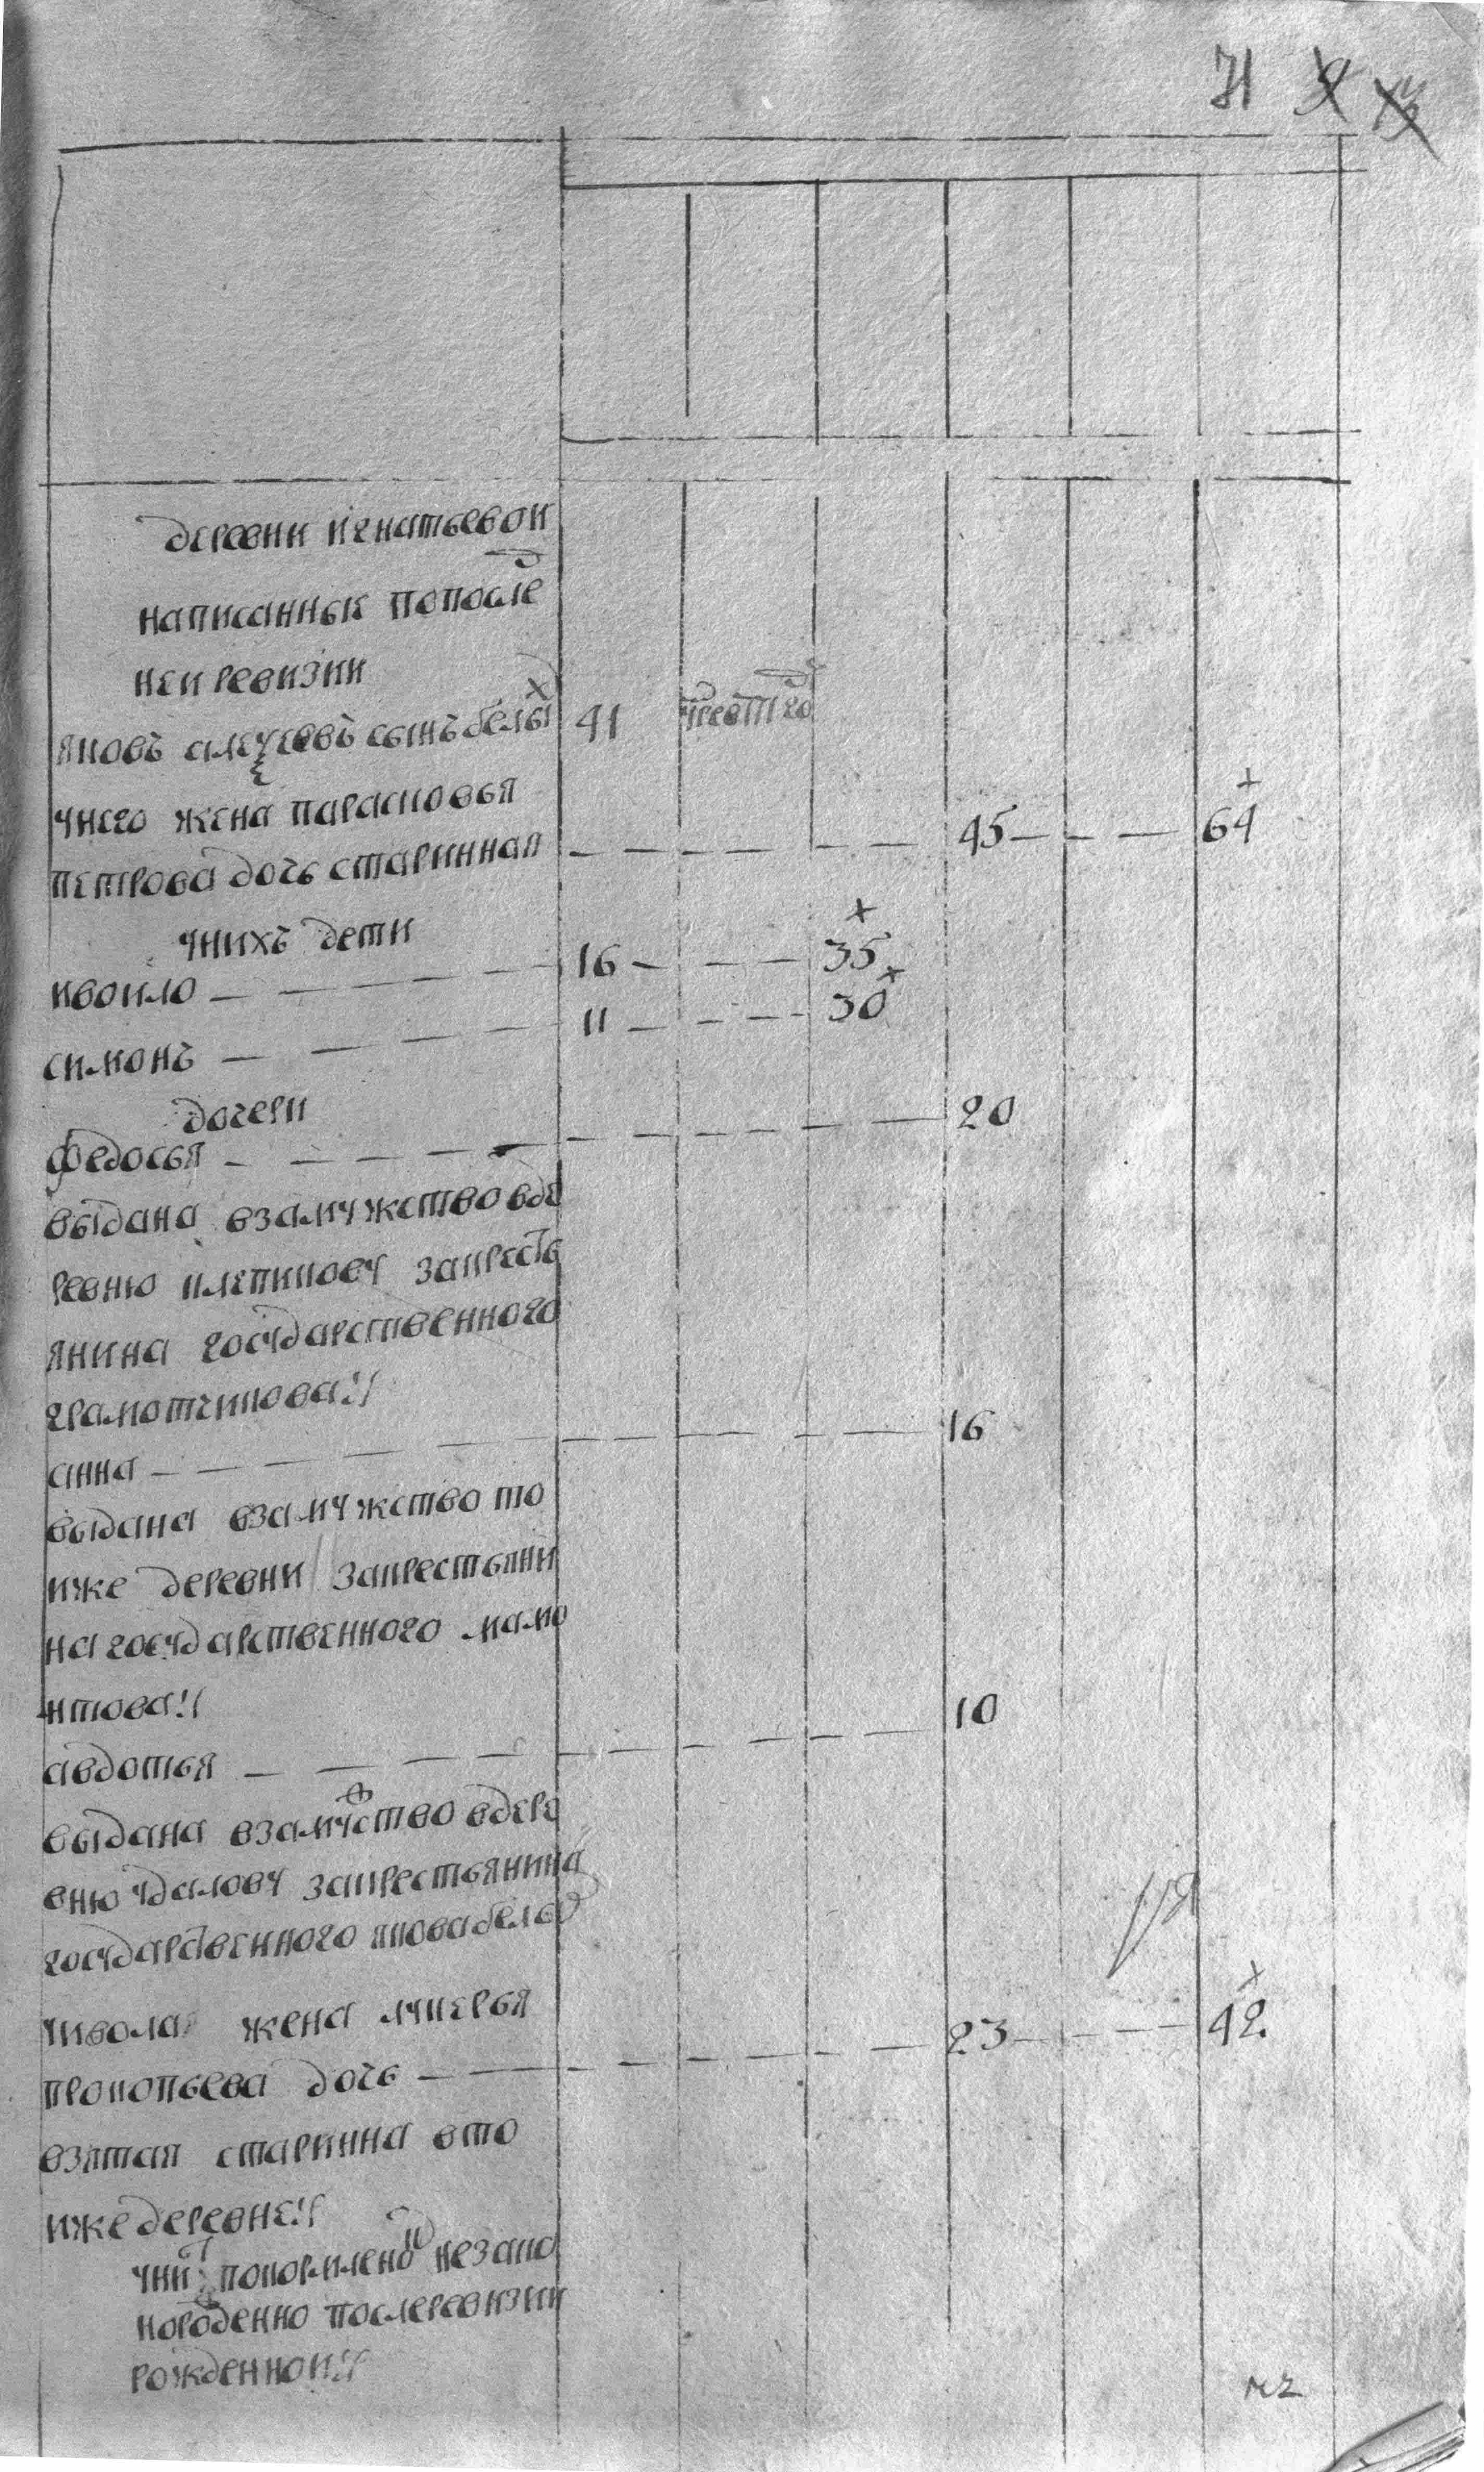 71
деревни игнатьевои
написанныя попосле
неи ревизии
яковъ алексеевъ сынъ белы 41
унего жена парасковья
петрова дочь старинная 45 64
унихъ дети
ивоило 16 35
симонъ 11 30
дочери
федосья 20
выдана взамужство вде
ревню клепикову закресть
янина государственного
грамотчикова
анна 16
выдана взамужство то
иже деревни закрестьяни
на государственного мамо
нтова
авдотья 10
выдана взамуство вдере
вню удалову закрестьянина
государственного якова белых
уивола жена лукерья
прокопьева дочь 23 42
взятая старинна вто
иже деревне
уних покормлено незако
норожденно послеревизии
рожденнои